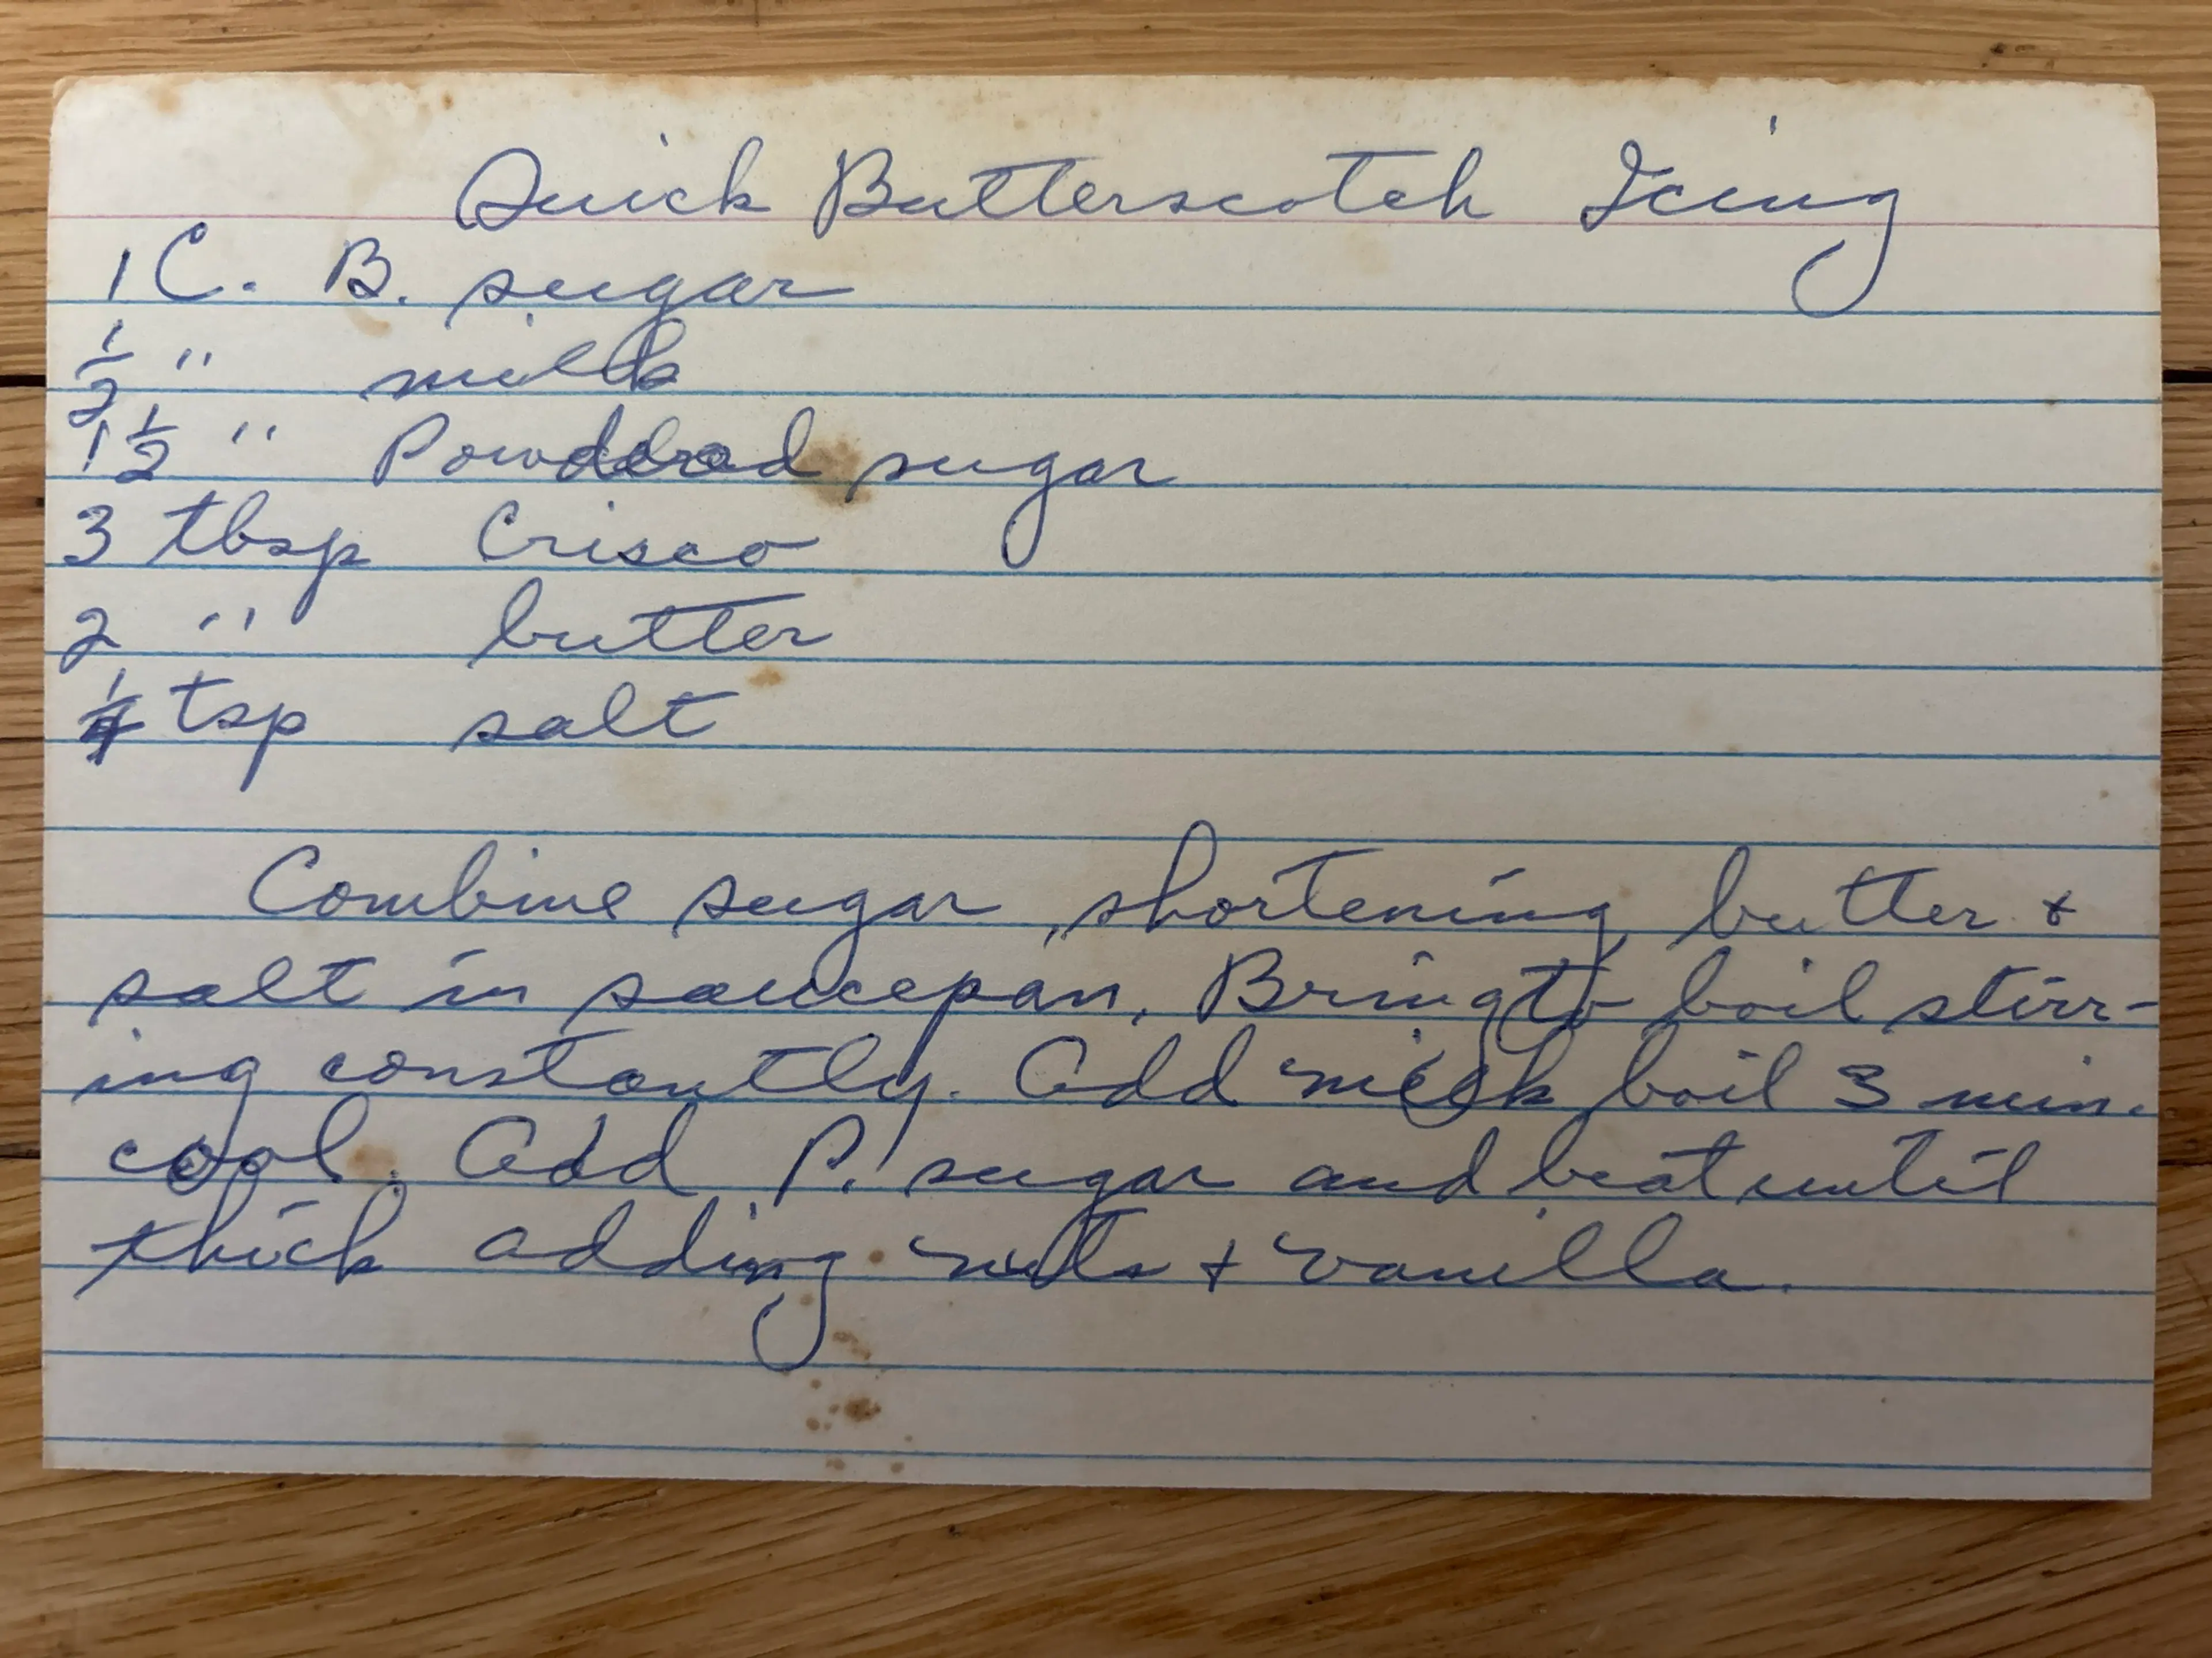 Quick Butterscotch Icing
1 C. B. sugar
1/2 " milk
1 1/2 " Powdered sugar
3 tbsp Crisco
2 " butter
1/4 tsp salt
Combine sugar, shortening, butter +
salt in saucepan. Bring to boil stirr-
ing constantly. Add milk boil 3 min.
cool. Add P. sugar and beat until
thick adding nuts + vanilla.